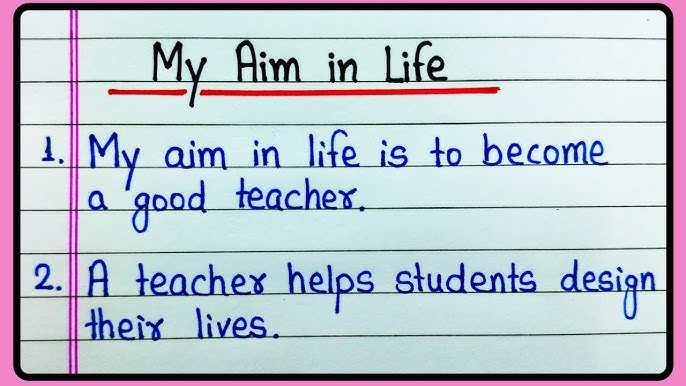 My Aim in Life
1. My aim in life is to become
a good teacher.
2. A teacher helps students design
their lives.